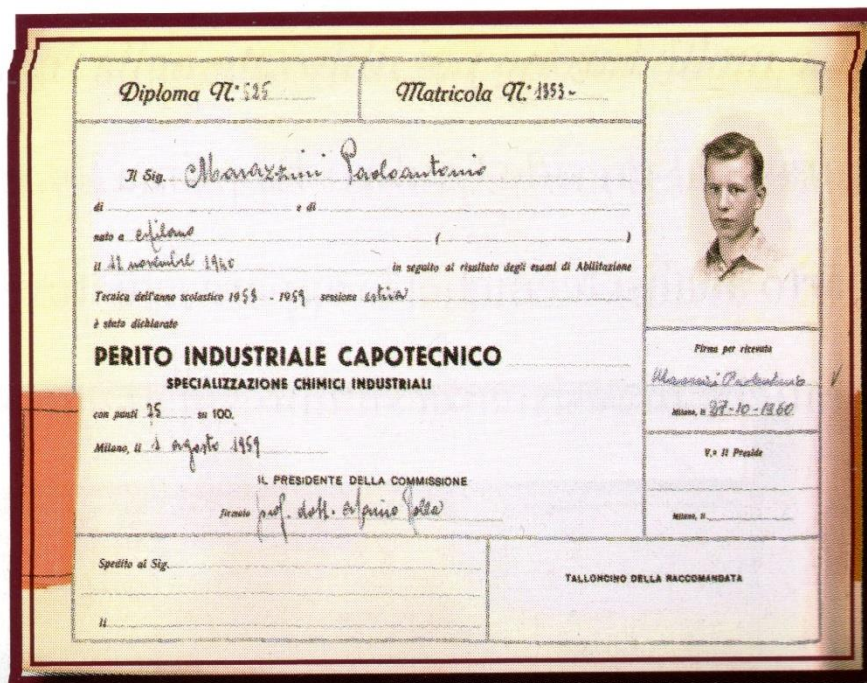 Diploma N.° 525
Matricola N.° 1353-
Il Sig. Marazzini Paoloantonio
di e di
nato a Milano ( )
il 12 novembre 1940 in seguito al risultato degli esami di Abilitazione
Tecnica dell'anno scolastico 1958 - 1959 sessione estiva
è stato dichiarato
PERITO INDUSTRIALE CAPOTECNICO
SPECIALIZZAZIONE CHIMICI INDUSTRIALI
con punti 75 su 100.
Milano, li 1 agosto 1959
IL PRESIDENTE DELLA COMMISSIONE
firmato prof. dott.
Firma per ricevuta
Marazzini Paoloantonio
Milano, li 27-10-1960
V.° Il Preside
Milano, li
Spedito al Sig.
li
TALLONCINO DELLA RACCOMANDATA